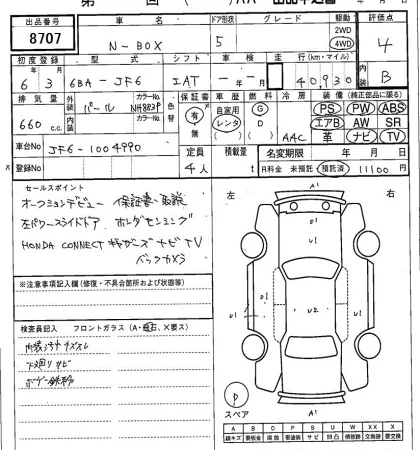 出品番号 車名 ドア形状 グレード 駆動 評価点
8707 N-BOX 5 2WD 4WD 4
初度登録 型式 シフト 車検 走行(km・マイル) 内装
6年3月 6BA-JF6 IAT - - 40,930 B
排気量 外装 カラーNo. 色替 保証書 車歴 燃料 冷房 装備(純正部品に限る)
660 c.c. パール NH883P 有・無 自家用 レンタ G D AAC PS PW ABS
エアB AW SR
内装 カラーNo. 革 ナビ TV
車台No. JF6-1004990 定員 積載量 名変期限 年 月 日
登録No. 4人 t R料金 未預託 預託済 11100円
セールスポイント
オークションデビュー 保証書・取説
左パワースライドドア ホンダセンシング
HONDA CONNECT ナビ TV
バックカメラ
左 右
※注意事項記入欄(修復・不具合箇所および状態等)
検査員記入 フロントガラス(A・飛石、X要ス)
内装 キズ
下廻りサビ
ボデー鉄粉
A1
U1 U1 U2 U1 U1
A1
スペア
A B C P S U W XX X
線キズ 要板金 腐蝕 要塗装 サビ 凹凸 補修跡 交換跡 要交換